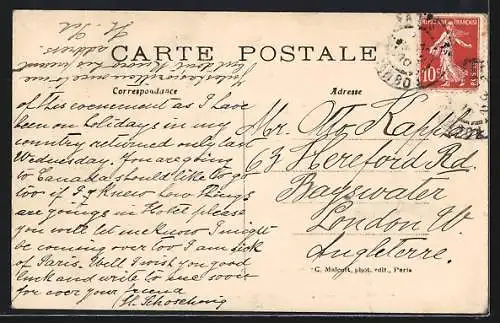 CARTE POSTALE
Correspondance
Adresse
of this document as I have
been on holidays in my
country returned only last
Wednesday. You are going
to Canada should like to go
too if I knew how things
are going in Hotel please
you write let me know I might
be coming over too I am sick
of Paris. Well I wish you good
luck and write to me soon
for ever your friend
Mr. Otto
63 Hereford Rd.
Bayswater
London W.
Angleterre.
C. Malcuit, phot. edit., Paris
RÉPUBLIQUE FRANÇAISE
10
POSTES